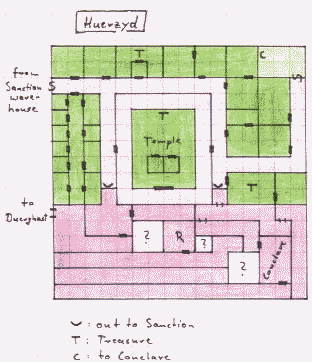 Huerzyd
T
C
from
Sanction
ware-
house
S
S
T
Temple
T
to
Duerghast
?
R
?
?
Conclave
: out to Sanction
T : Treasure
C : to Conclave